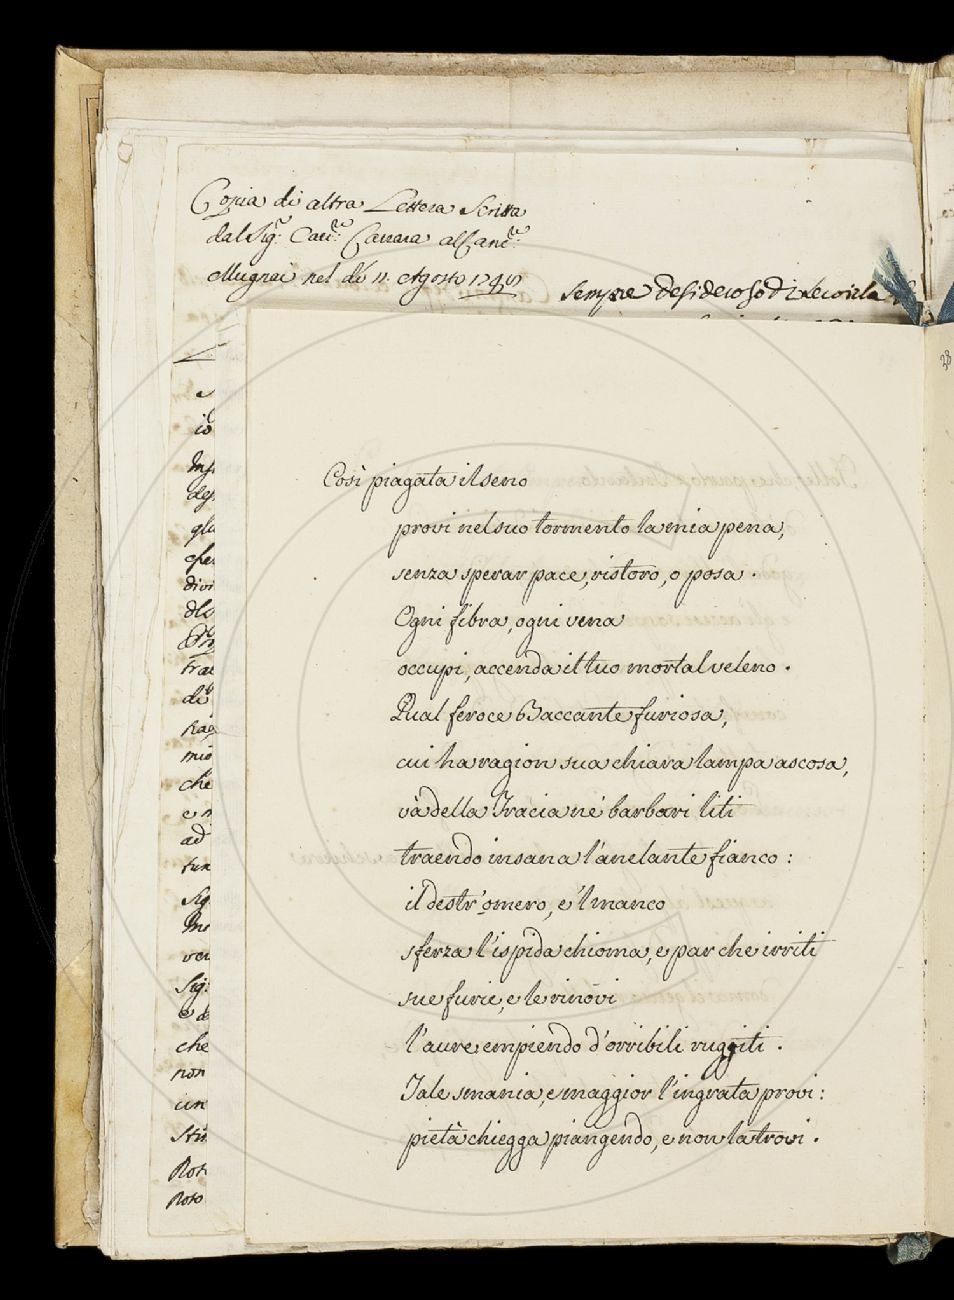 Copia di altra Lettera Scritta
dal Sig.r Cav.re Carrara al Canc.re
Mugnai nel dì 11. Agosto
sempre desideroso di
Così piagata il seno
provi nel suo tormento la mia pena,
senza sperar pace, ristoro, o posa.
Ogni fibra, ogni vena
occupi, accenda il tuo mortal veleno.
Qual feroce Baccante furiosa,
cui ha ragion sua chiara lampa ascosa,
và della Tracia né barbari liti
traendo insana l'anelante fianco:
il destr'omero, e'l manco
sferza l'ispida chioma, e par che irriti
sue furie, e le rinòvi
l'aure empiendo d'orribili ruggiti.
Tale smania, e maggior l'ingrata provi:
pietà chiegga piangendo, e non la trovi.
38
io
divi
frat
di
mio
che
ad
Sig.
che
non